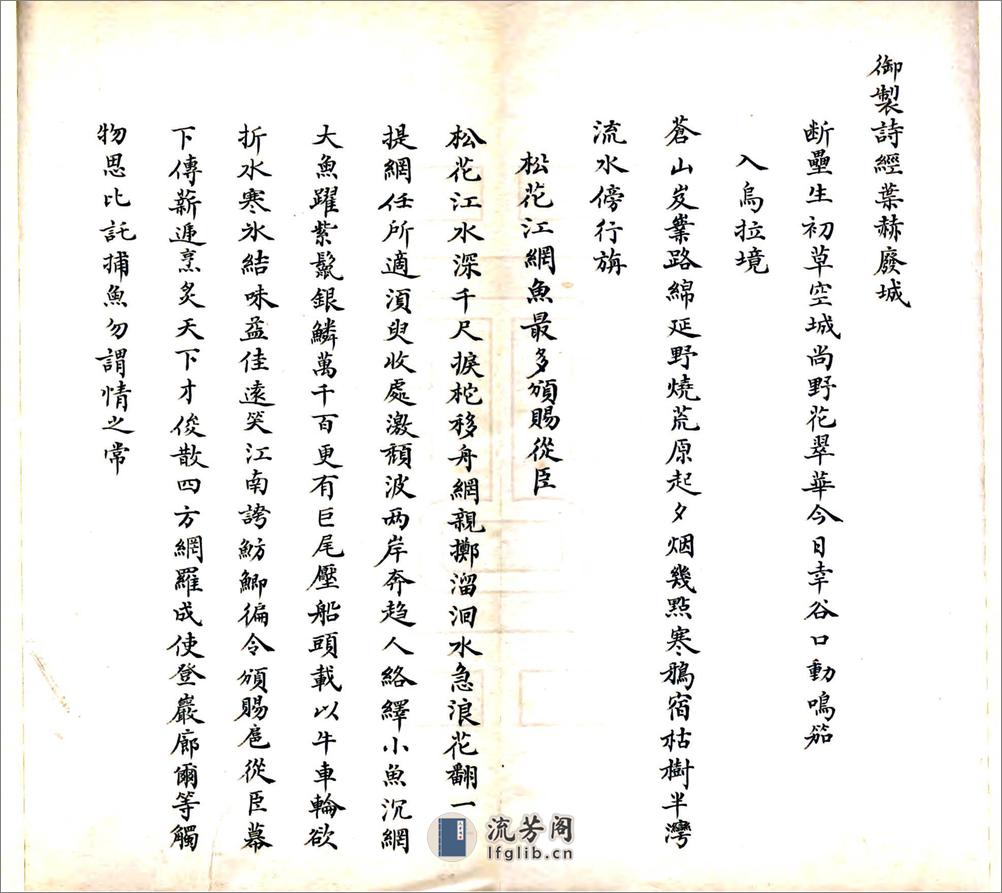 御製詩經葉赫廢城
断壘生初草空城尚野花翠華今日幸谷口動鳴笳
入烏拉境
蒼山岌嶪路綿延野燒荒原起夕烟幾點寒鴉宿枯樹半灣
流水傍行旃
松花江網魚最多頒賜從臣
松花江水深千尺捩柁移舟網親擲溜洄水急浪花翻一
提網任所適湏臾收處激頹波两岸奔趋人絡繹小魚沉網
大魚躍紫鬣銀鱗萬千百更有巨尾壓船頭載以牛車輪欲
折水寒氷結味益佳遠笑江南誇魴鯽徧令頒賜扈從臣幕
下傳薪遞烹炙天下才俊散四方網羅咸使登巖廊爾等觸
物思比託捕魚勿謂情之常
流芳阁
lfglib.cn